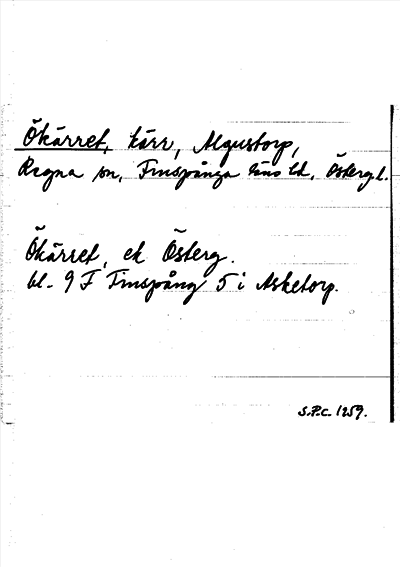 Ökärret, kärr, Algustorp,
Regna sn, Finspånga läns hd, Östergl.
Ökärret, ek Österg.
bl. 9 F Finspång 5 i Asketorp.
S.P.C. 1259.